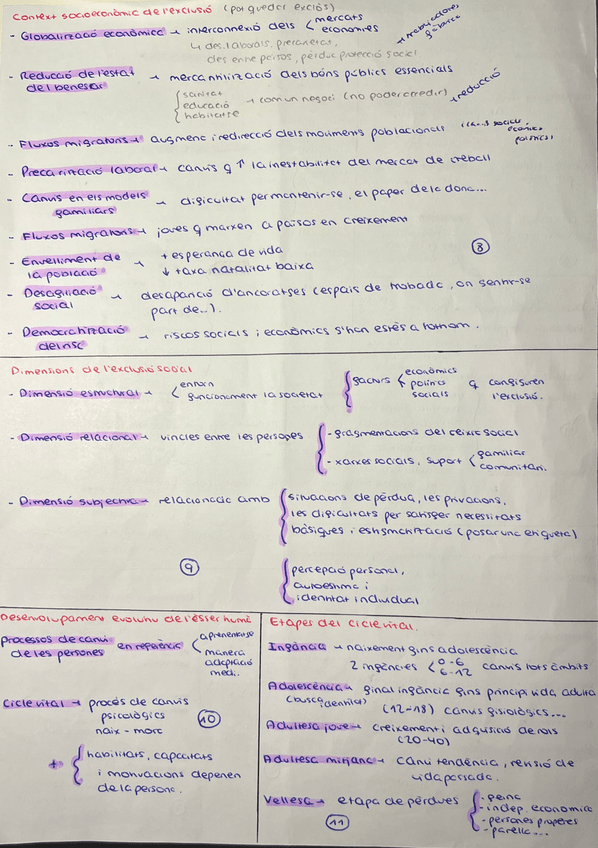 Context socioeconòmic de l'exclusió (pot quedar exclòs)
- Globalització econòmica → interconnexió dels < mercats
economies
↳ des. laborals, precarietat,
des. entre països, pèrdua protecció social
treballadors
pobres
- Reducció de l'estat → mercantilització dels béns públics essencials
del benestar
sanitat
educació → com un negoci (no poder accedir) → reducció
habitatge
- Fluxos migratoris → augment i redirecció dels moviments poblacionals
polítics)
- Precarització laboral → canvis q ↑ la inestabilitat del mercat de treball
- Canvis en els models → dificultat per mantenir-se, el paper de la dona...
familiars
- Fluxos migratoris → joves q marxen a països en creixement
- Envelliment de → + esperança de vida
la població ↓ taxa natalitat baixa
8
- Desafiliació → desaparició d'ancoratges (espais de trobada, on sentir-se
social part de..).
- Democratització → riscos socials i econòmics s'han estès a tothom.
del risc
Dimensions de l'exclusió social
- Dimensió estructural → < entorn
funcionament la societat
factors < econòmics
polítics
socials
q configuren
l'exclusió.
- Dimensió relacional → vincles entre les persones
- fragmentacions del teixit social
- xarxes socials, suport < familiar
comunitari.
- Dimensió subjectiva → relacionada amb
situacions de pèrdua, les privacions,
les dificultats per satisfer necessitats
bàsiques i estigmatització (posar una etiqueta)
9
percepció personal,
autoestima i
identitat individual
Desenvolupament evolutiu de l'ésser humà
Processos de canvi en referència < aprenentatge
de les persones
manera
adaptació
medi.
Cicle vital → procés de canvis
psicològics
naix - mort
10
+ habilitats, capacitats
i motivacions depenen
de la persona.
Etapes del cicle vital.
Infància → naixement fins adolescència
2 infàncies < 0-6
6-12
canvis tots àmbits
Adolescència → final infància fins principi vida adulta
(busca identitat) (12-18) canvis fisiològics...
Adultesa jove → creixement i adquisició de rols
(20-40)
Adultesa mitjana → canvi tendència, revisió de
vida passada.
Vellesa → etapa de pèrdues
- feina
- indep econòmica
- persones properes
- parella...
11